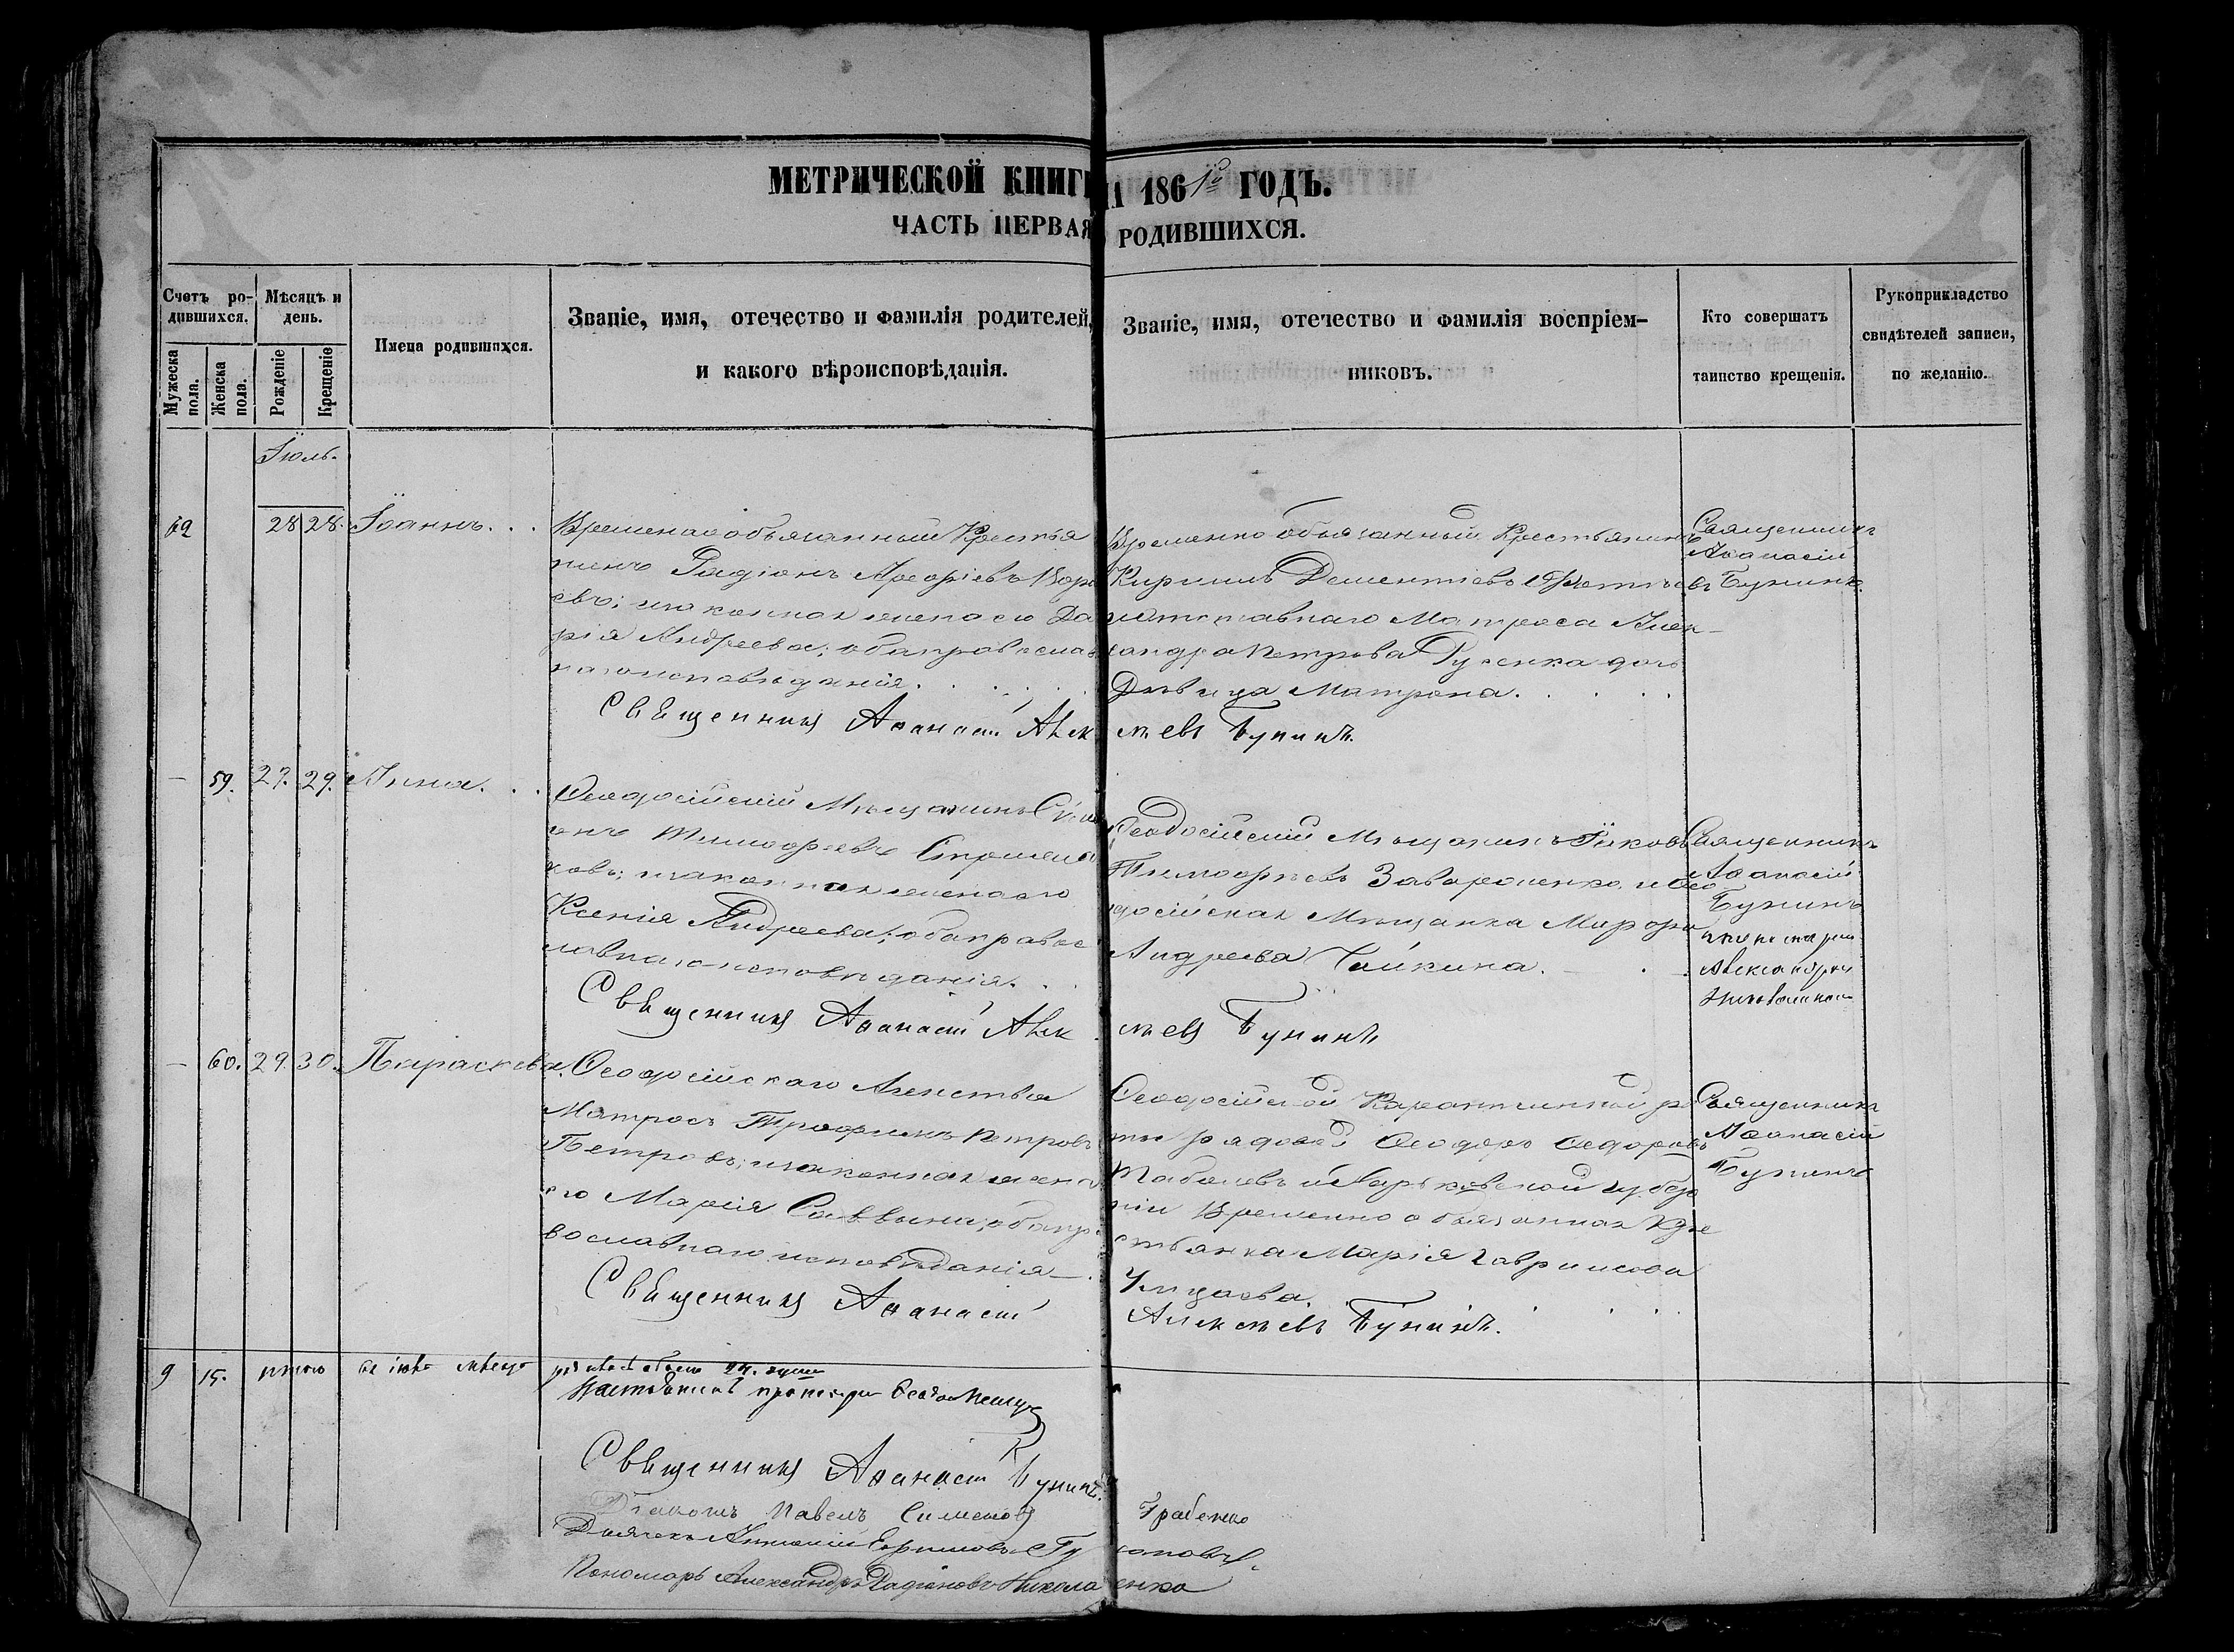 МЕТРИЧЕСКОЙ КНИГИ НА 1861го ГОДЪ.
ЧАСТЬ ПЕРВАЯ О РОДИВШИХСЯ.
Счетъ ро-
дившихся.
Мужеска пола.
Женска пола.
Мѣсяцъ и
день.
Рожденіе
Крещеніе
Имена родившихся.
Званіе, имя, отечество и фамилія родителей,
и какого вѣроисповѣданія.
Званіе, имя, отечество и фамилія воспріем-
никовъ.
Кто совершатъ
таинство крещенія.
Рукоприкладство
свидѣтелей записи,
по желанію.
Іюль.
62 28 28. Іоаннъ. . .
Временнообязанный Крестья
нинъ Радіонъ
евъ; и законная жена его Да
рія Андреева; оба православ
наго исповѣданія. . . . .
Временно обязанный Крестьянинъ
Кирилъ Дементіевъ
отставнаго Матроса Алек-
сандра Петрова Руденка дочь
Дѣвица Матрона. . . . .
Священникъ
Афанасій
Бунинъ
Священникъ Афанасій Алексѣевъ Бунинъ.
— 59. 27. 29. Анна. . .
Феодосійскій Мѣщанинъ Сѵме
онъ Тимофеевъ
ковъ; и законная жена его
Ксенія Андреева; оба правос
лавнаго исповѣданія. . .
Феодосійскій Мѣщанинъ Яковъ
Тимофѣевъ Завороненко и Фео
досійская Мѣщанка Марфа
Андреева Чайкина. — . .
Священникъ
Афанасій
Бунинъ
и пономарем
Александром
Николаенком
Священникъ Афанасій Алексѣевъ Бунинъ
— 60. 29. 30. Параскева.
Феодосійскаго Агенства
Матросъ Трофимъ Петровъ
Петровъ; и законная жена
его Марія Саввина; оба пра
вославнаго исповѣданія —.
Феодосійской Карантинной ро
ты рядовой Феодоръ Федоровъ
Табалевъ и Харьковской губер
ніи Временно обязанная Кре
стьянка Марія Гаврилова
Священникъ
Афанасій
Бунинъ
Священникъ Афанасій
Алексѣевъ Бунинъ.
9 15. итого въ іюлѣ мѣсяцѣ
обоего 24. души
Священникъ Афанасій Бунинъ.
Діаконъ Павелъ Симеоновъ Грабенко
Дьячекъ Антоній Ефимовъ
Пономарь Александръ Радіоновъ Николаенко